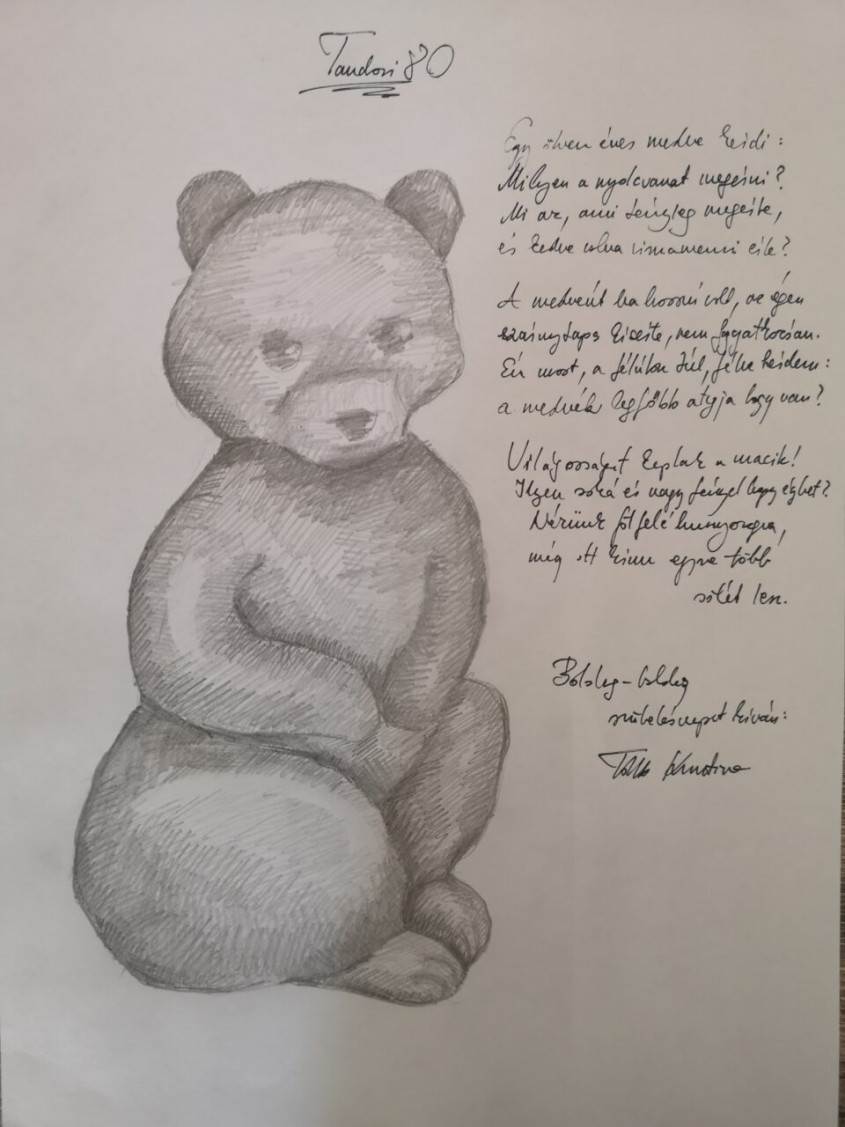 Tandori 80
Egy ötven éves medve kérdi:
Milyen a nyolcvanat megérni?
Mi az, ami tényleg megérte,
és kedve volna visszamenni érte?
A medvéút ha hosszú volt, az égen
szárnytaps kísérte, nem fogyatkozóan.
Én most, a félúton túl, félve kérdem:
a medvék legfőbb atyja hogy van?
Világosságot kaptak a macik!
Ilyen soká és nagy fénnyel hogy éghet?
Nézünk fölfelé hunyorogva,
míg itt kinn egyre több
sötét lesz.
Boldog-boldog
születésnapot kíván:
Tóth Krisztina